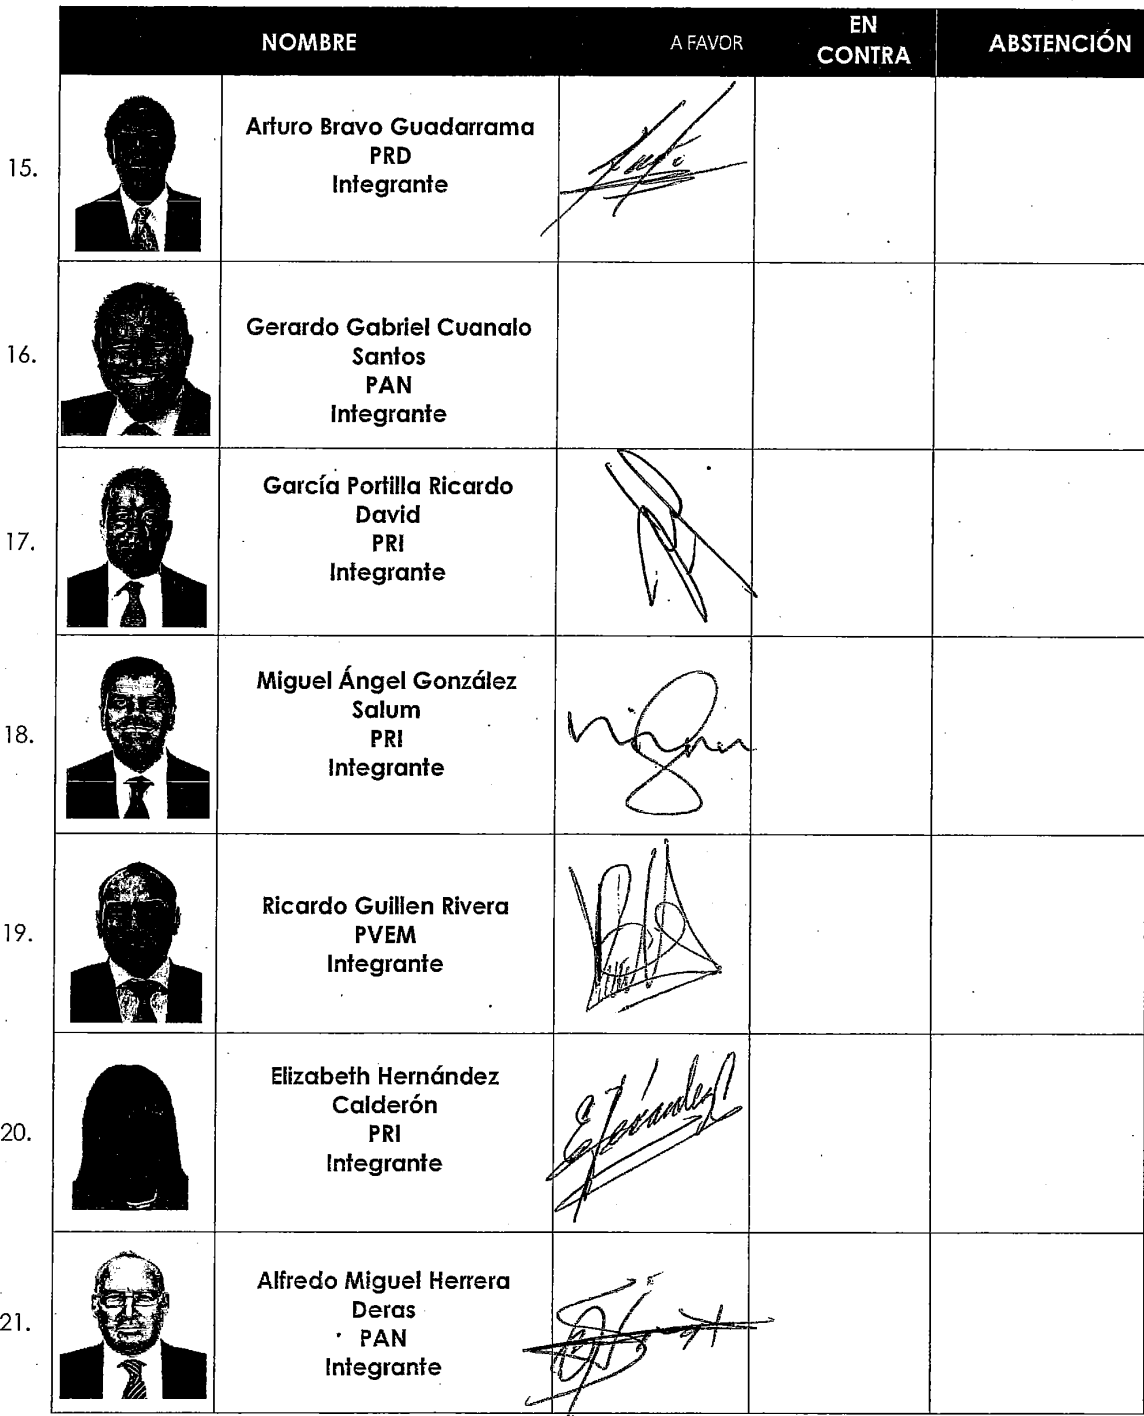 NOMBRE A FAVOR EN CONTRA ABSTENCIÓN
15.
Arturo Bravo Guadarrama
PRD
Integrante
16.
Gerardo Gabriel Cuanalo
Santos
PAN
Integrante
17.
García Portilla Ricardo
David
PRI
Integrante
18.
Miguel Ángel González
Salum
PRI
Integrante
19.
Ricardo Guillen Rivera
PVEM
Integrante
20.
Elizabeth Hernández
Calderón
PRI
Integrante
21.
Alfredo Miguel Herrera
Deras
PAN
Integrante